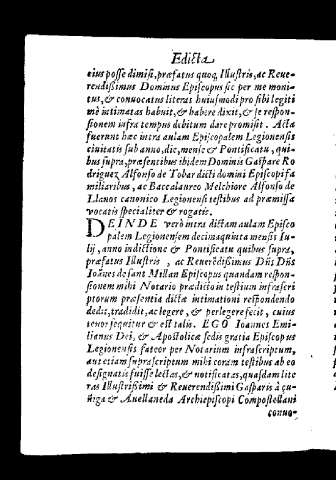 Edicta
eius posse dimisi, præfatus quoq, Illustris, ac Reue-
rendißimus Dominus Episcopus sic per me moni-
tus, & conuocatus literas huiusmodi pro sibi legiti
mè intimatas habuit, & habere dixit, & se respon-
sionem infra tempus debitum dare promisit. Acta
fuerunt hæc intra aulam Episcopalem Legionensis
ciuitatis sub anno, die, mense & Pontificatu, qui-
bus supra, præsentibus ibidem Dominis Gaspare Ro
driguez, Alfonso de Tobar dicti domini Episcopi fa
miliaribus, ac Baccalaureo Melchiore Alfonso de
Llanos canonico Legionensi testibus ad præmissa
vocatis specialiter & rogatis.
DEINDE verò intra dictam aulam Episco
palem Legionensem decimaquinta mensis Iu-
lij, anno indictione & Pontificatu quibus supra,
præfatus Illustris, ac Reuerendißimus Dñs Dñs
Ioānes de sant Millan Episcopus quandam respon-
sionem mihi Notario prædicto in testium infrascri
ptorum præsentia dictæ intimationi respondendo
dedit, tradidit, ac legere, & perlegere fecit, cuius
tenor sequitur & est talis. EGO Ioannes Emi-
lianus Dei, & Apostolicæ sedis gratia Episcopus
Legionensis fateor per Notarium infrascriptum,
aut etiam suprascriptum mihi coram testibus ab eo
designatis fuisse lectas, & notificatas, quasdam lite
ras Illustrißimi & Reuerendißimi Gasparis à çu-
ñiga & Auellaneda Archiepiscopi Compostellani
conuo-